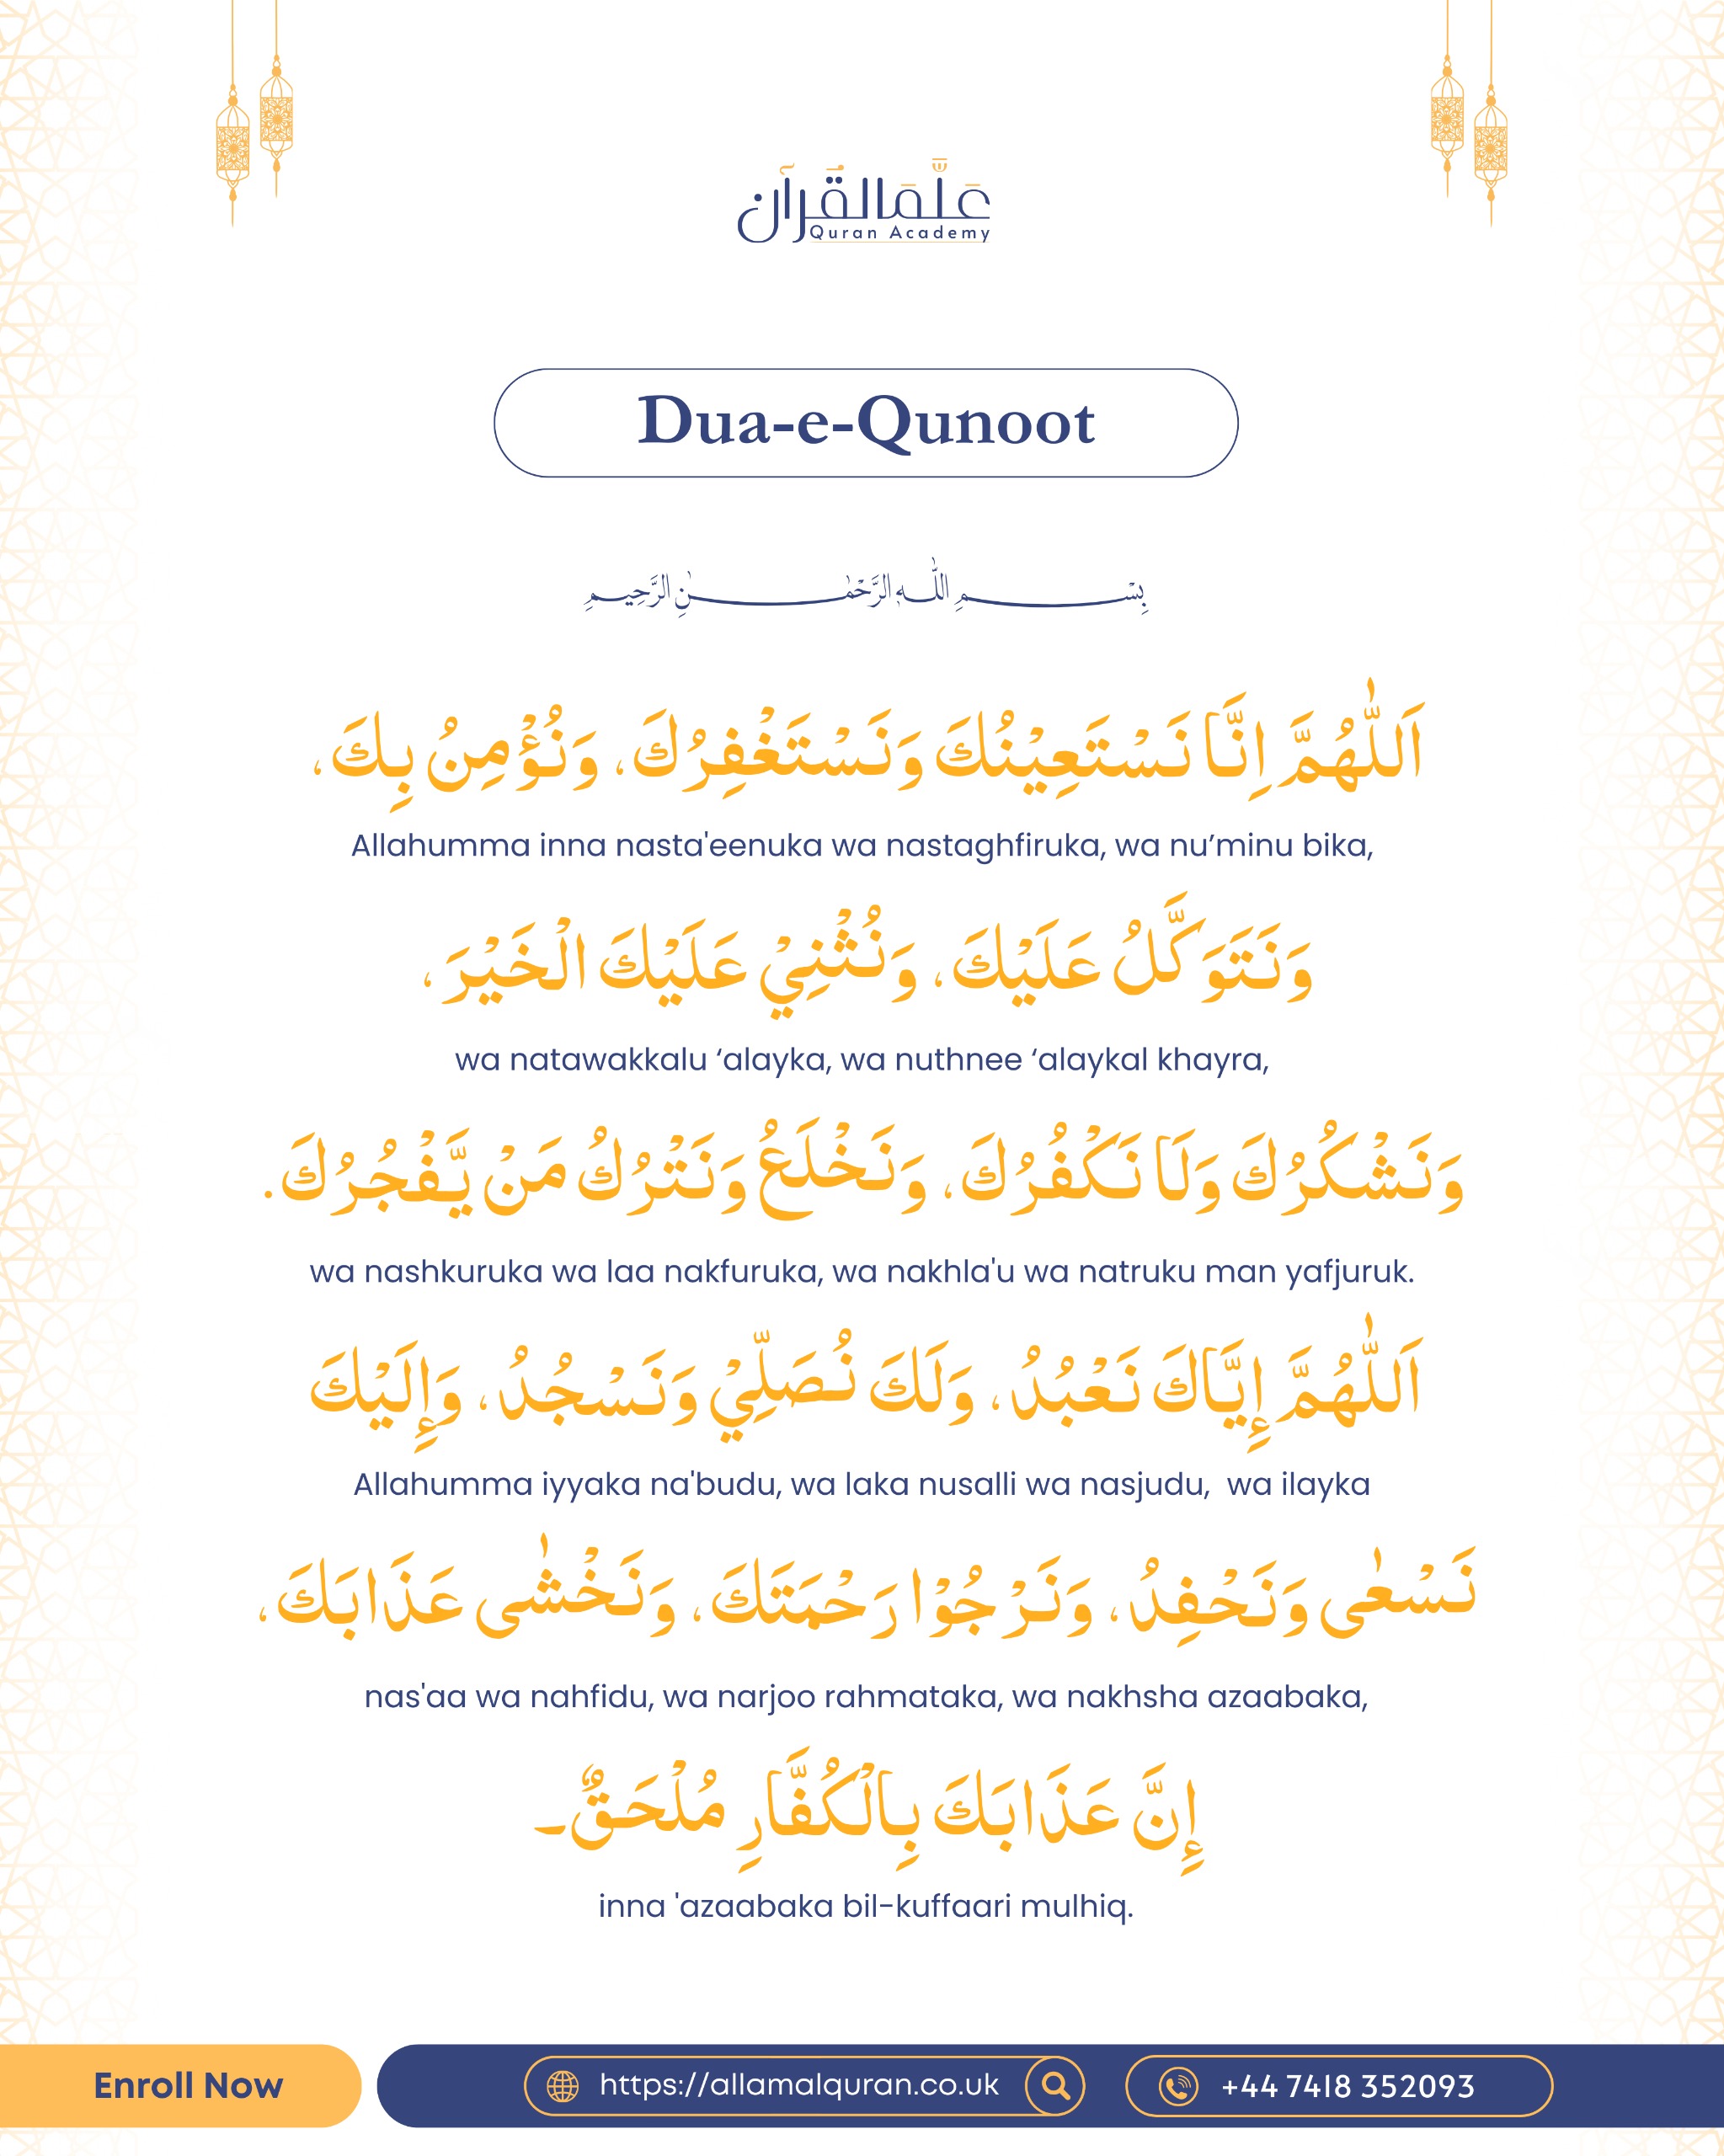 عَلَّمَ الْقُرآن
Quran Academy
Dua-e-Qunoot
بِسْمِ اللّٰهِ الرَّحْمٰنِ الرَّحِيمِ
اَللّٰهُمَّ اِنَّا نَسْتَعِيْنُكَ وَنَسْتَغْفِرُكَ، وَنُؤْمِنُ بِكَ،
Allahumma inna nasta'eenuka wa nastaghfiruka, wa nu’minu bika,
وَنَتَوَكَّلُ عَلَيْكَ، وَنُثْنِيْ عَلَيْكَ الْخَيْرَ،
wa natawakkalu ‘alayka, wa nuthnee ‘alaykal khayra,
وَنَشْكُرُكَ وَلَا نَكْفُرُكَ، وَنَخْلَعُ وَنَتْرُكُ مَنْ يَّفْجُرُكَ.
wa nashkuruka wa laa nakfuruka, wa nakhla'u wa natruku man yafjuruk.
اَللّٰهُمَّ إِيَّاكَ نَعْبُدُ، وَلَكَ نُصَلِّيْ وَنَسْجُدُ، وَإِلَيْكَ
Allahumma iyyaka na'budu, wa laka nusalli wa nasjudu,  wa ilayka
نَسْعٰى وَنَحْفِدُ، وَنَرْجُوْا رَحْمَتَكَ، وَنَخْشٰى عَذَابَكَ،
nas'aa wa nahfidu, wa narjoo rahmataka, wa nakhsha azaabaka,
إِنَّ عَذَابَكَ بِالْكُفَّارِ مُلْحَقٌ۔
inna 'azaabaka bil-kuffaari mulhiq.
Enroll Now
https://allamalquran.co.uk
+44 7418 352093